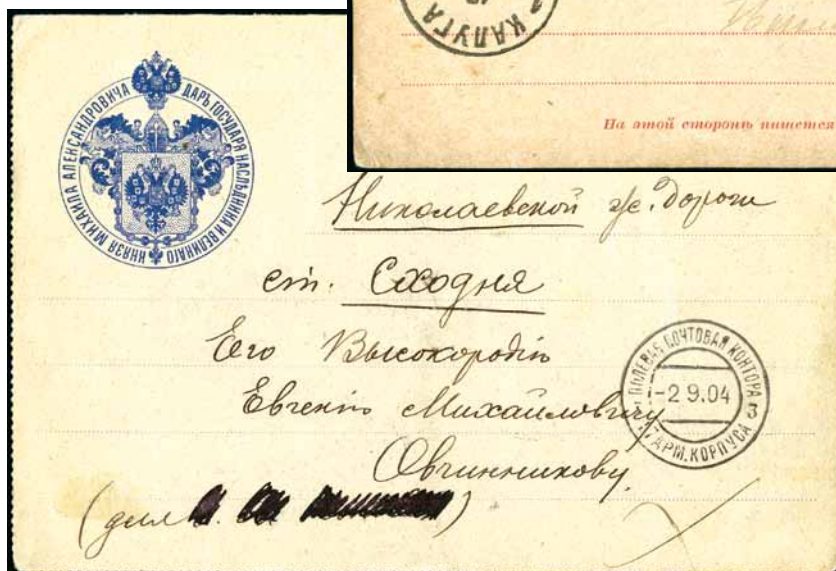 КАЛУГА
На этой сторонѣ пишется
ДАРЪ ГОСУДАРЯ НАСЛѢДНИКА И ВЕЛИКАГО КНЯЗЯ МИХАИЛА АЛЕКСАНДРОВИЧА
Николаевской ж. дороги
ст. Сходня
Его Высокородію
Евгенію Михайловичу
Овчинникову
(для
ПОЛЕВАЯ ПОЧТОВАЯ КОНТОРА
-2 9.04
3
АРМ. КОРПУСА